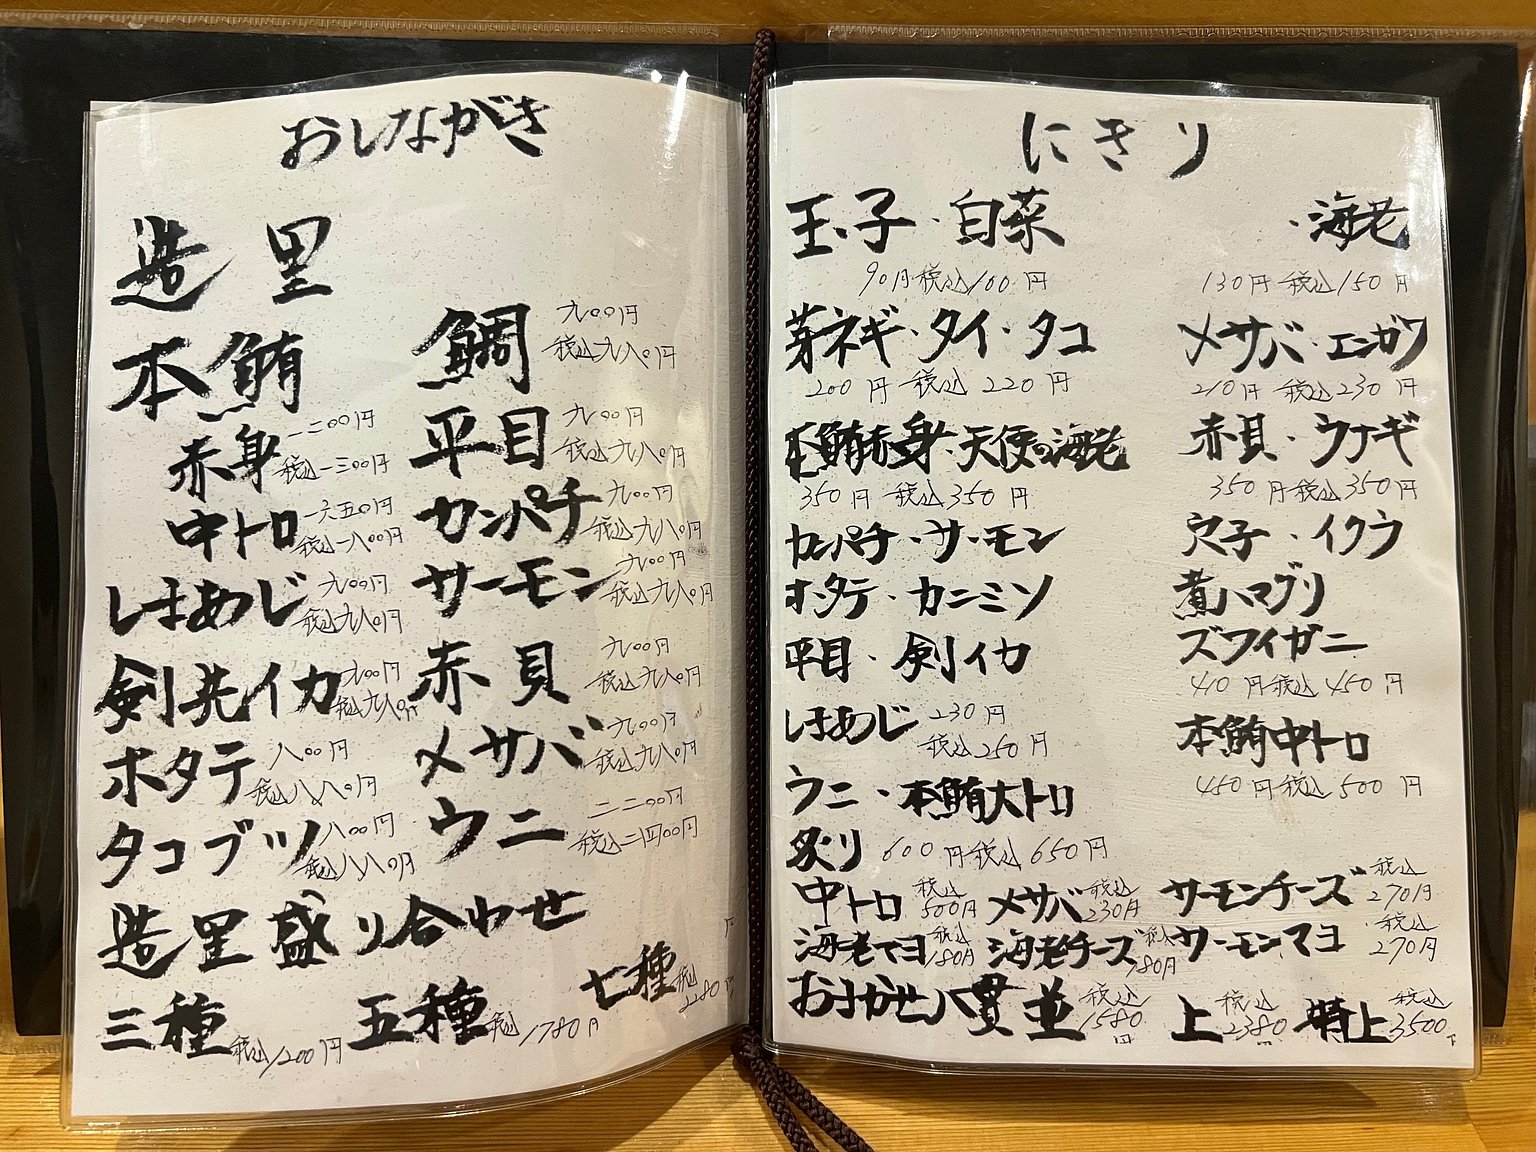 おしながき
造里
本鮪
赤身 一二〇〇円
税込一三〇〇円
中トロ 一六五〇円
税込一八〇〇円
しまあじ 九〇〇円
税込九八〇円
剣先イカ 九〇〇円
税込九八〇円
ホタテ 八〇〇円
税込八八〇円
タコブツ 八〇〇円
税込八八〇円
鯛 九〇〇円
税込九八〇円
平目 九〇〇円
税込九八〇円
カンパチ 九〇〇円
税込九八〇円
サーモン 九〇〇円
税込九八〇円
赤貝 九〇〇円
税込九八〇円
〆サバ 九〇〇円
税込九八〇円
ウニ 二二〇〇円
税込二四〇〇円
造里盛り合わせ
三種 税込1200円 五種 税込1780円 七種 税込
にぎり
玉子・白菜
90円 税込100円
芽ネギ・タイ・タコ
200円 税込220円
本鮪赤身・天使の海老
350円 税込350円
カンパチ・サーモン
ホタテ・カニミソ
平目・剣イカ
しまあじ 230円
税込250円
ウニ・本鮪大トロ
600円 税込650円
・海老
130円 税込150円
〆サバ・エンガワ
210円 税込230円
赤貝・ウナギ
350円 税込350円
穴子・イクラ
煮ハマグリ
ズワイガニ
410円 税込450円
本鮪中トロ
450円 税込500円
炙り
中トロ 税込500円 〆サバ 税込230円 サーモンチーズ 税込270円
海老マヨ 税込180円 海老チーズ 税込180円 サーモンマヨ 税込270円
おまかせ八貫 並 税込1580円 上 税込2380円 特上 税込3500